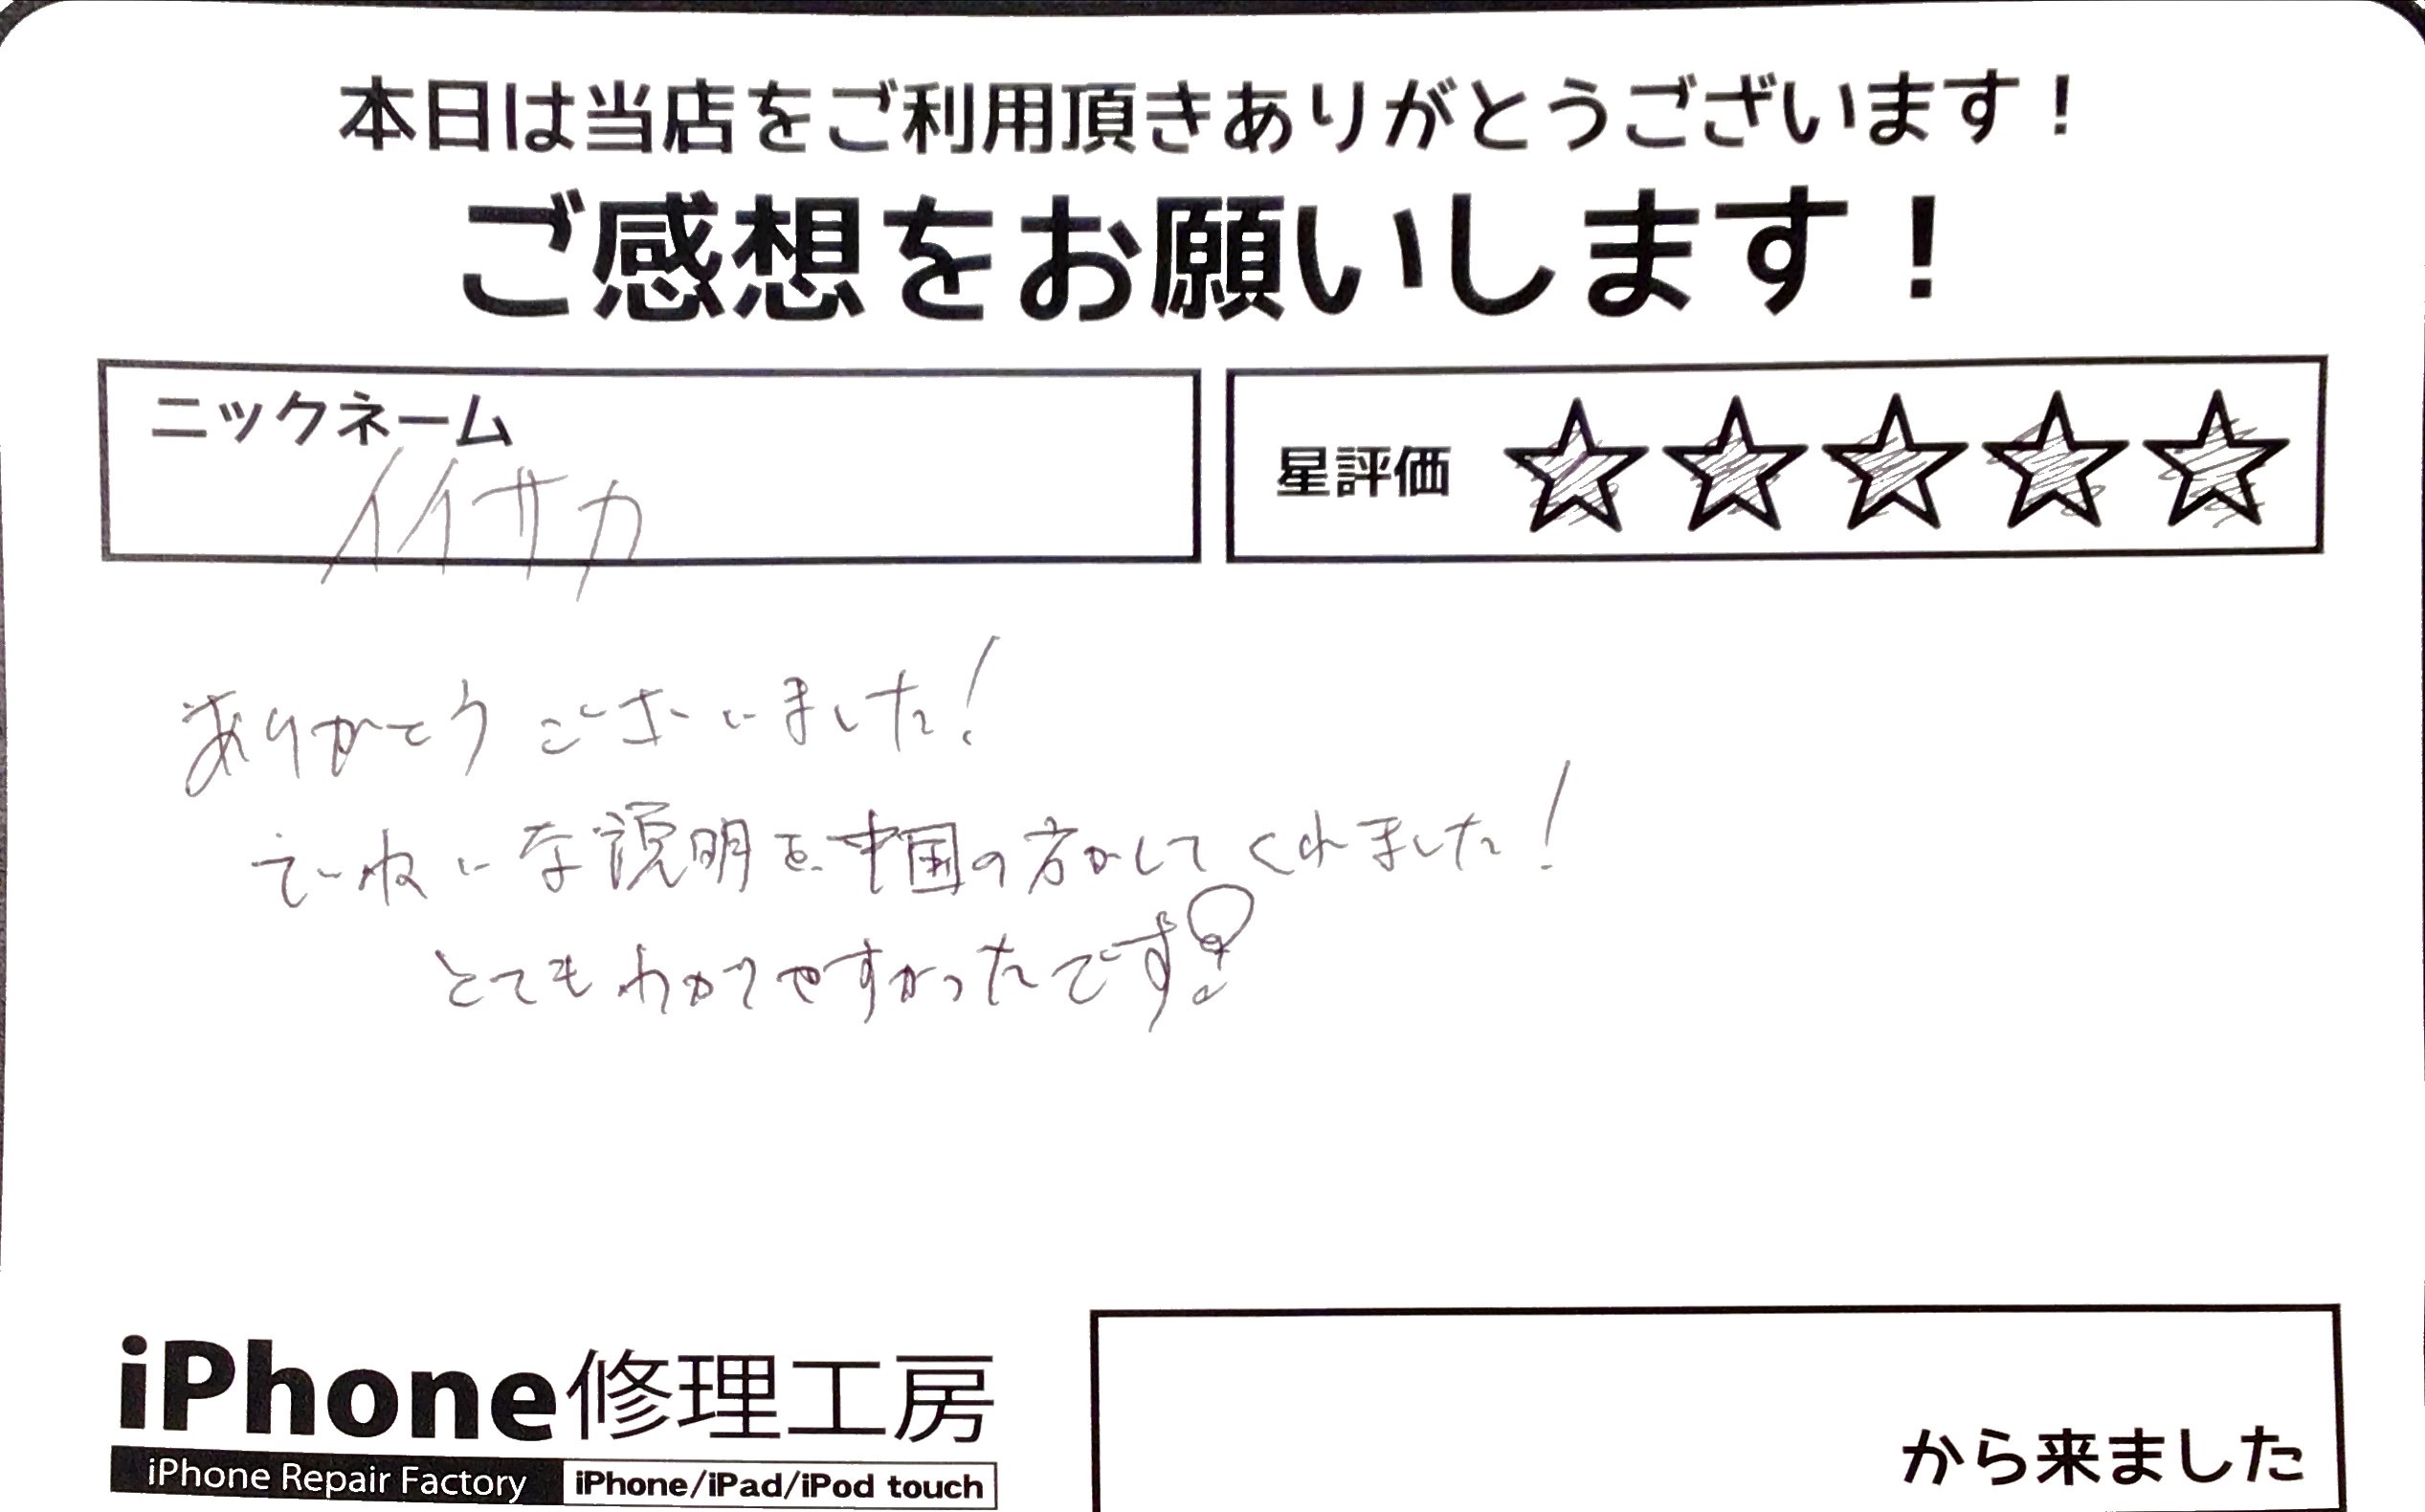 本日は当店をご利用頂きありがとうございます！
ご感想をお願いします！
ニックネーム
イイサカ
星評価 ☆☆☆☆☆
ありがとうございました！
ていねいな説明を中国の方がしてくれました！
とてもわかりやすかったです！
iPhone修理工房
iPhone Repair Factory iPhone/iPad/iPod touch
から来ました